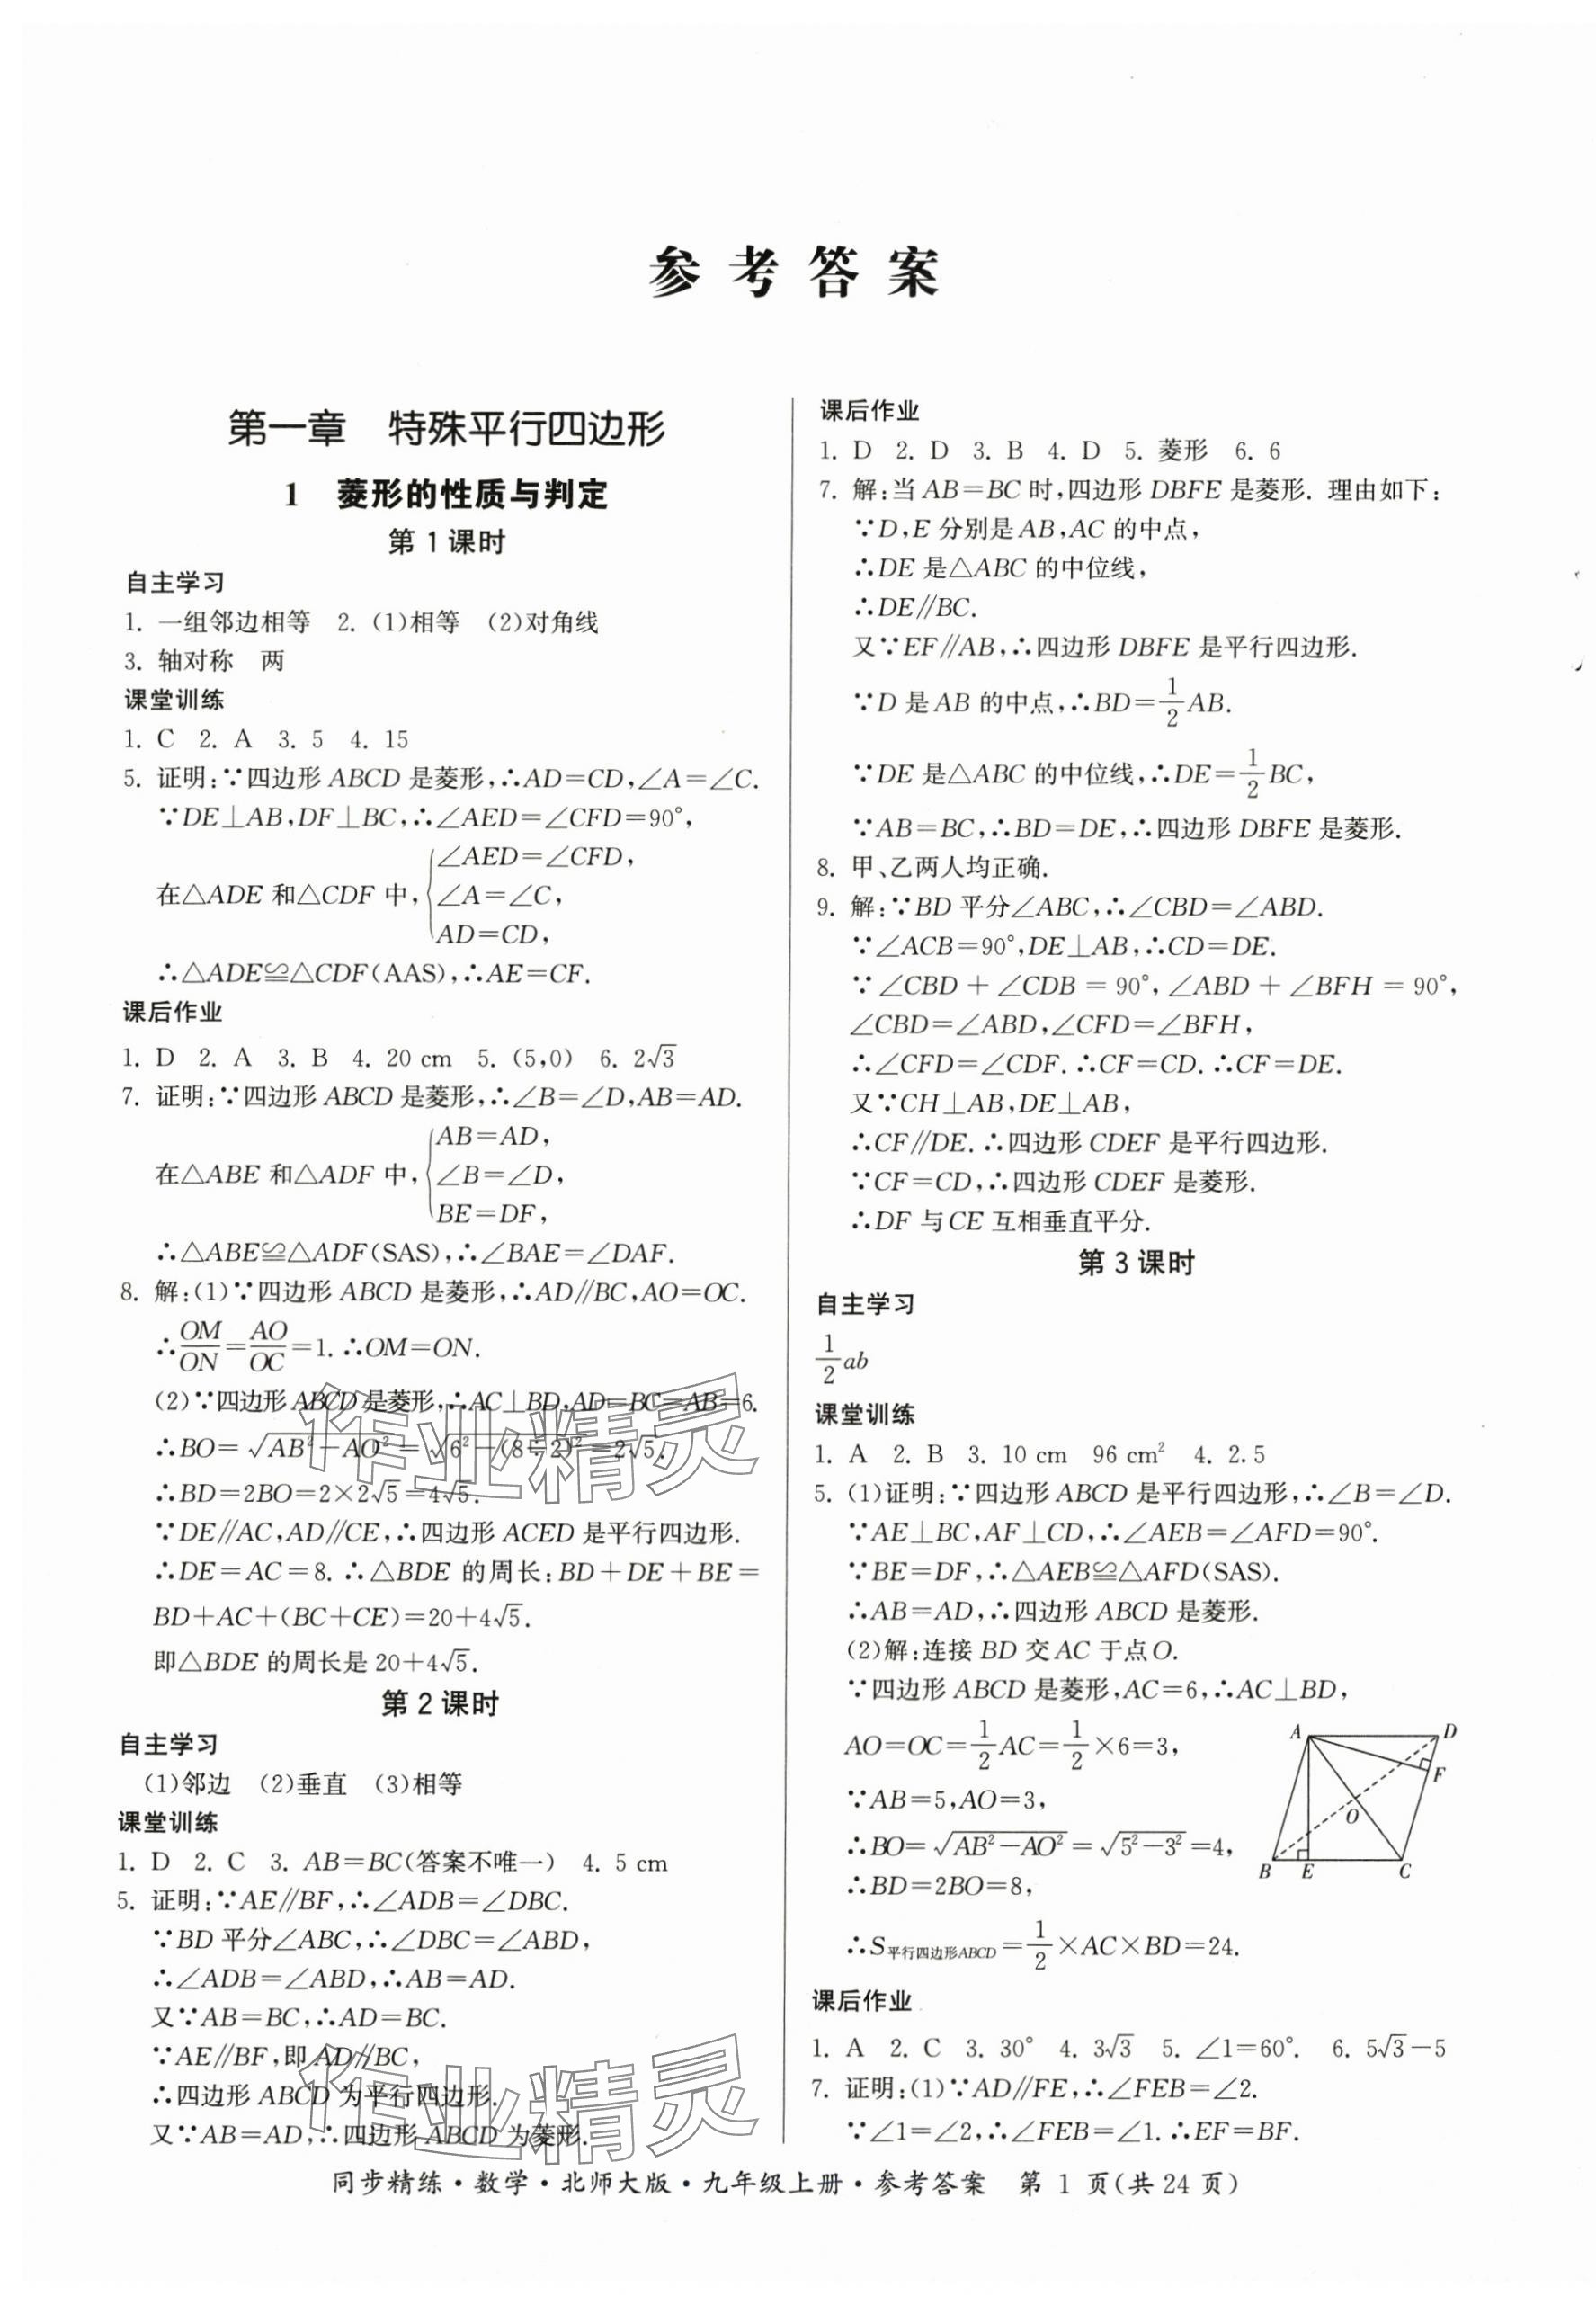 参考答案
第一章 特殊平行四边形
1 菱形的性质与判定
第1课时
自主学习
1. 一组邻边相等 2. (1)相等 (2)对角线
3. 轴对称 两
课堂训练
1. C 2. A 3. 5 4. 15
5. 证明:∵四边形ABCD是菱形,∴AD=CD,∠A=∠C.
∵DE⊥AB,DF⊥BC,∴∠AED=∠CFD=90°,
在△ADE和△CDF中,{∠AED=∠CFD,
∠A=∠C,
AD=CD,
∴△ADE≌△CDF(AAS),∴AE=CF.
课后作业
1. D 2. A 3. B 4. 20 cm 5. (5,0) 6. 2√3
7. 证明:∵四边形ABCD是菱形,∴∠B=∠D,AB=AD.
在△ABE和△ADF中,{AB=AD,
∠B=∠D,
BE=DF,
∴△ABE≌△ADF(SAS),∴∠BAE=∠DAF.
8. 解:(1)∵四边形ABCD是菱形,∴AD∥BC,AO=OC.
∴OM/ON=AO/OC=1.∴OM=ON.
(2)∵四边形ABCD是菱形,∴AC⊥BD,AD=BC=AB=6.
∴BO=√(AB²-AO²)=√(6²-(8÷2)²)=2√5.
∴BD=2BO=2×2√5=4√5.
∵DE∥AC,AD∥CE,∴四边形ACED是平行四边形.
∴DE=AC=8.∴△BDE的周长:BD+DE+BE=
BD+AC+(BC+CE)=20+4√5.
即△BDE的周长是20+4√5.
第2课时
自主学习
(1)邻边 (2)垂直 (3)相等
课堂训练
1. D 2. C 3. AB=BC(答案不唯一) 4. 5 cm
5. 证明:∵AE∥BF,∴∠ADB=∠DBC.
∵BD平分∠ABC,∴∠DBC=∠ABD,
∴∠ADB=∠ABD,∴AB=AD.
又∵AB=BC,∴AD=BC.
∵AE∥BF,即AD∥BC,
∴四边形ABCD为平行四边形.
又∵AB=AD,∴四边形ABCD为菱形.
课后作业
1. D 2. D 3. B 4. D 5. 菱形 6. 6
7. 解:当AB=BC时,四边形DBFE是菱形. 理由如下:
∵D,E分别是AB,AC的中点,
∴DE是△ABC的中位线,
∴DE∥BC.
又∵EF∥AB,∴四边形DBFE是平行四边形.
∵D是AB的中点,∴BD=1/2AB.
∵DE是△ABC的中位线,∴DE=1/2BC,
∵AB=BC,∴BD=DE,∴四边形DBFE是菱形.
8. 甲、乙两人均正确.
9. 解:∵BD平分∠ABC,∴∠CBD=∠ABD.
∵∠ACB=90°,DE⊥AB,∴CD=DE.
∵∠CBD+∠CDB=90°,∠ABD+∠BFH=90°,
∠CBD=∠ABD,∠CFD=∠BFH,
∴∠CFD=∠CDF.∴CF=CD.∴CF=DE.
又∵CH⊥AB,DE⊥AB,
∴CF∥DE.∴四边形CDEF是平行四边形.
∵CF=CD,∴四边形CDEF是菱形.
∴DF与CE互相垂直平分.
第3课时
自主学习
1/2ab
课堂训练
1. A 2. B 3. 10 cm 96 cm² 4. 2.5
5. (1)证明:∵四边形ABCD是平行四边形,∴∠B=∠D.
∵AE⊥BC,AF⊥CD,∴∠AEB=∠AFD=90°.
∵BE=DF,∴△AEB≌△AFD(SAS).
∴AB=AD,∴四边形ABCD是菱形.
(2)解:连接BD交AC于点O.
∵四边形ABCD是菱形,AC=6,∴AC⊥BD,
AO=OC=1/2AC=1/2×6=3,
∵AB=5,AO=3,
∴BO=√(AB²-AO²)=√(5²-3²)=4,
∴BD=2BO=8,
∴S平行四边形ABCD=1/2×AC×BD=24.
A D
F
O
B E C
课后作业
1. A 2. C 3. 30° 4. 3√3 5. ∠1=60°. 6. 5√3-5
7. 证明:(1)∵AD∥FE,∴∠FEB=∠2.
∵∠1=∠2,∴∠FEB=∠1.∴EF=BF.
同步精练·数学·北师大版·九年级上册·参考答案 第1页(共24页)
作业精灵
作业精灵